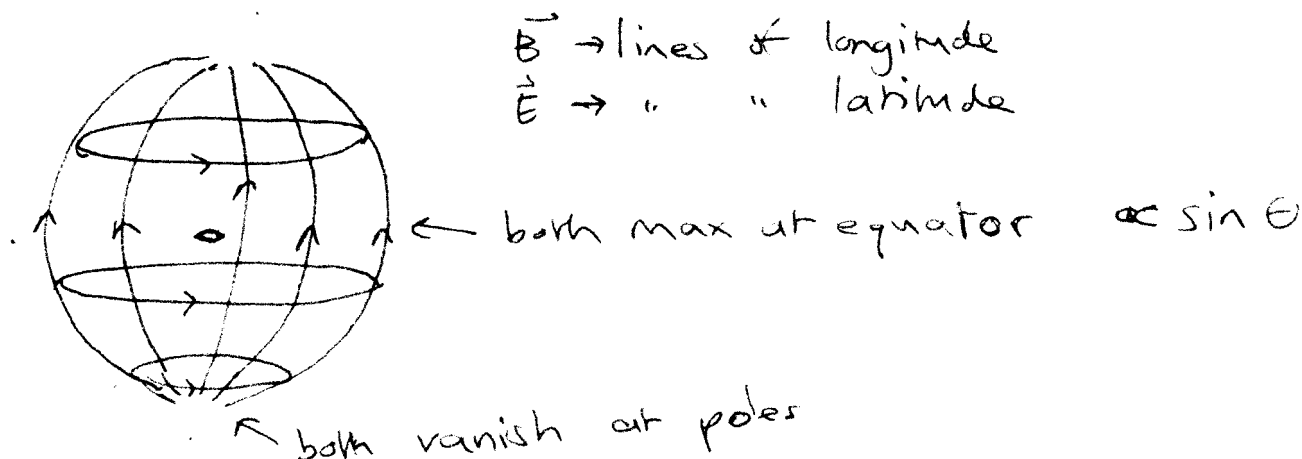 B⃗ → lines of longitude
E⃗ → " " latitude
← both max at equator ∝ sin θ
↖ both vanish at poles